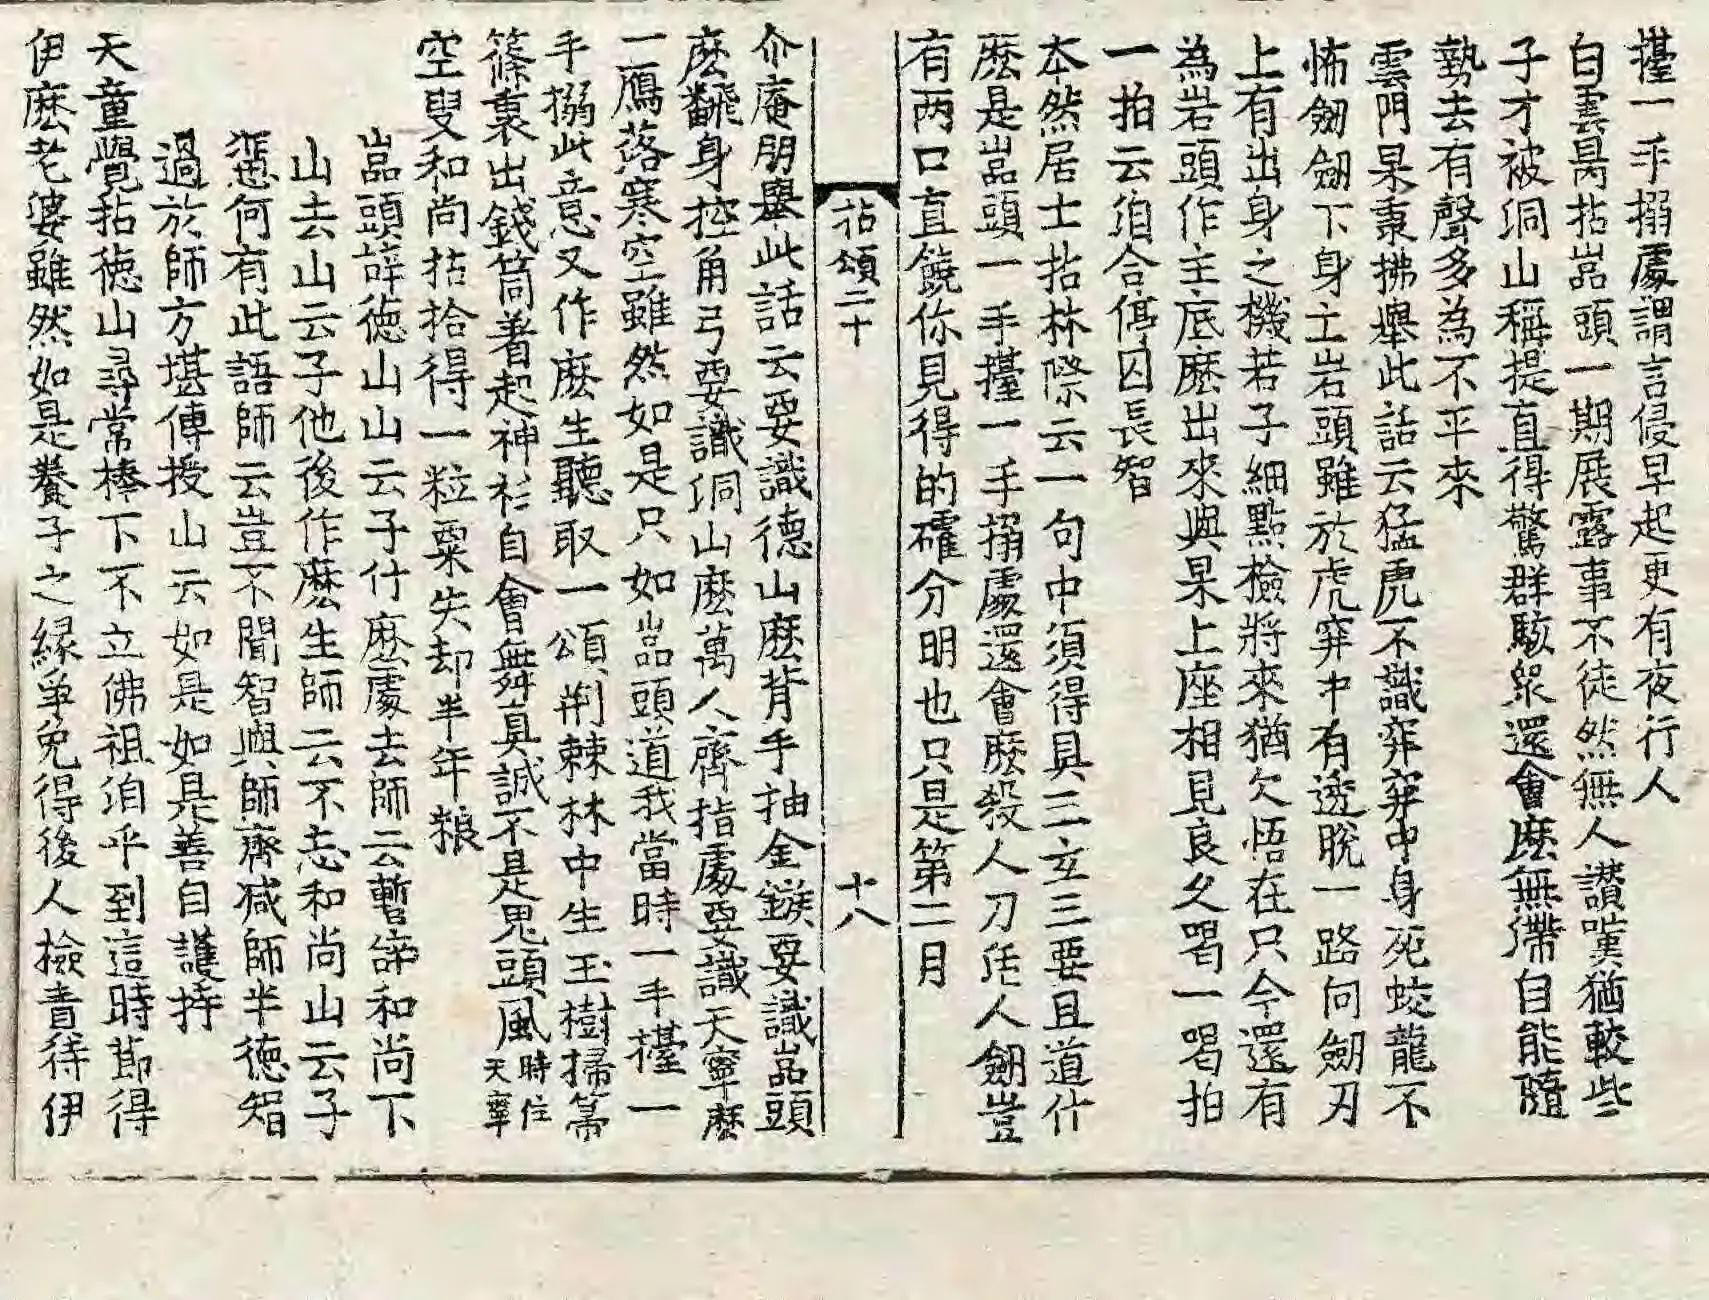 擡一手搦處謂言侵早起更有夜行人
白雲昺拈嵓頭一期展露事不徒然無人讃嘆猶較些
子才被洞山稱提直得驚群駭衆還會麽無滯自能隨
勢去有聲多為不平來
雲門杲秉拂舉此話云猛虎不識穽穽中身死蛟龍不
怖劒劒下身亡岩頭雖於虎穽中有透脫一路向劒刃
上有出身之機若子細點檢將來猶欠悟在只今還有
為岩頭作主底麽出來與杲上座相見良久喝一喝拍
一拍云洎合停囚長智
本然居士拈林際云一句中須得具三玄三要且道什
麽是嵓頭一手擡一手搦處還會麽殺人刀活人劒豈
有两口直饒你見得的確分明也只是第二月
拈頌二十 十八
介庵朋舉此話云要識德山麽背手抽金鏃要識嵓頭
麽飜身控角弓要識洞山麽萬人齊指處要識天寧麽
一鴈落寒空雖然如是只如嵓頭道我當時一手擡一
手搦此意又作麽生聽取一頌荆棘林中生玉樹掃箒
篠裏出錢筒著起神衫自會舞真誠不是鬼頭風時住天寧
空叟和尚拈拾得一粒粟失却半年粮
嵓頭辞徳山山云子什麽處去師云暫辞和尚下
山去山云子他後作麽生師云不忘和尚山云子
憑何有此語師云豈不聞智與師齊減師半徳智
過於師方堪傳授山云如是如是善自護持
天童覺拈徳山尋常棒下不立佛祖洎乎到這時節得
伊麽老婆雖然如是養子之緣爭免得後人檢責待伊